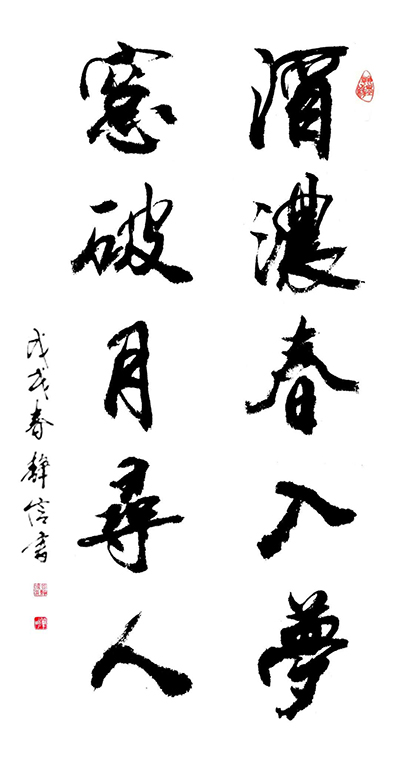 酒濃春入夢
窻破月尋人
戊戌春靜信書